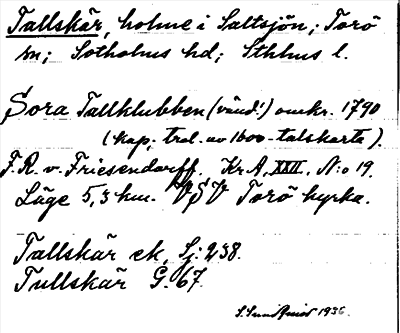 Tallskär, holme i Saltsjön; Torö
sn; Sotholms hd; Sthlms l.
Sora Tallklubben (vänd!) omkr. 1790
(kap. tral. av 1600-talskarta).
F. R. v. Friesendorff. Kr A, XXII, N:o 19.
Läge 5,3 km. VSV Torö kyrka.
Tallskär ek. Sj: 238.
Tullskär G. 67.
1936.